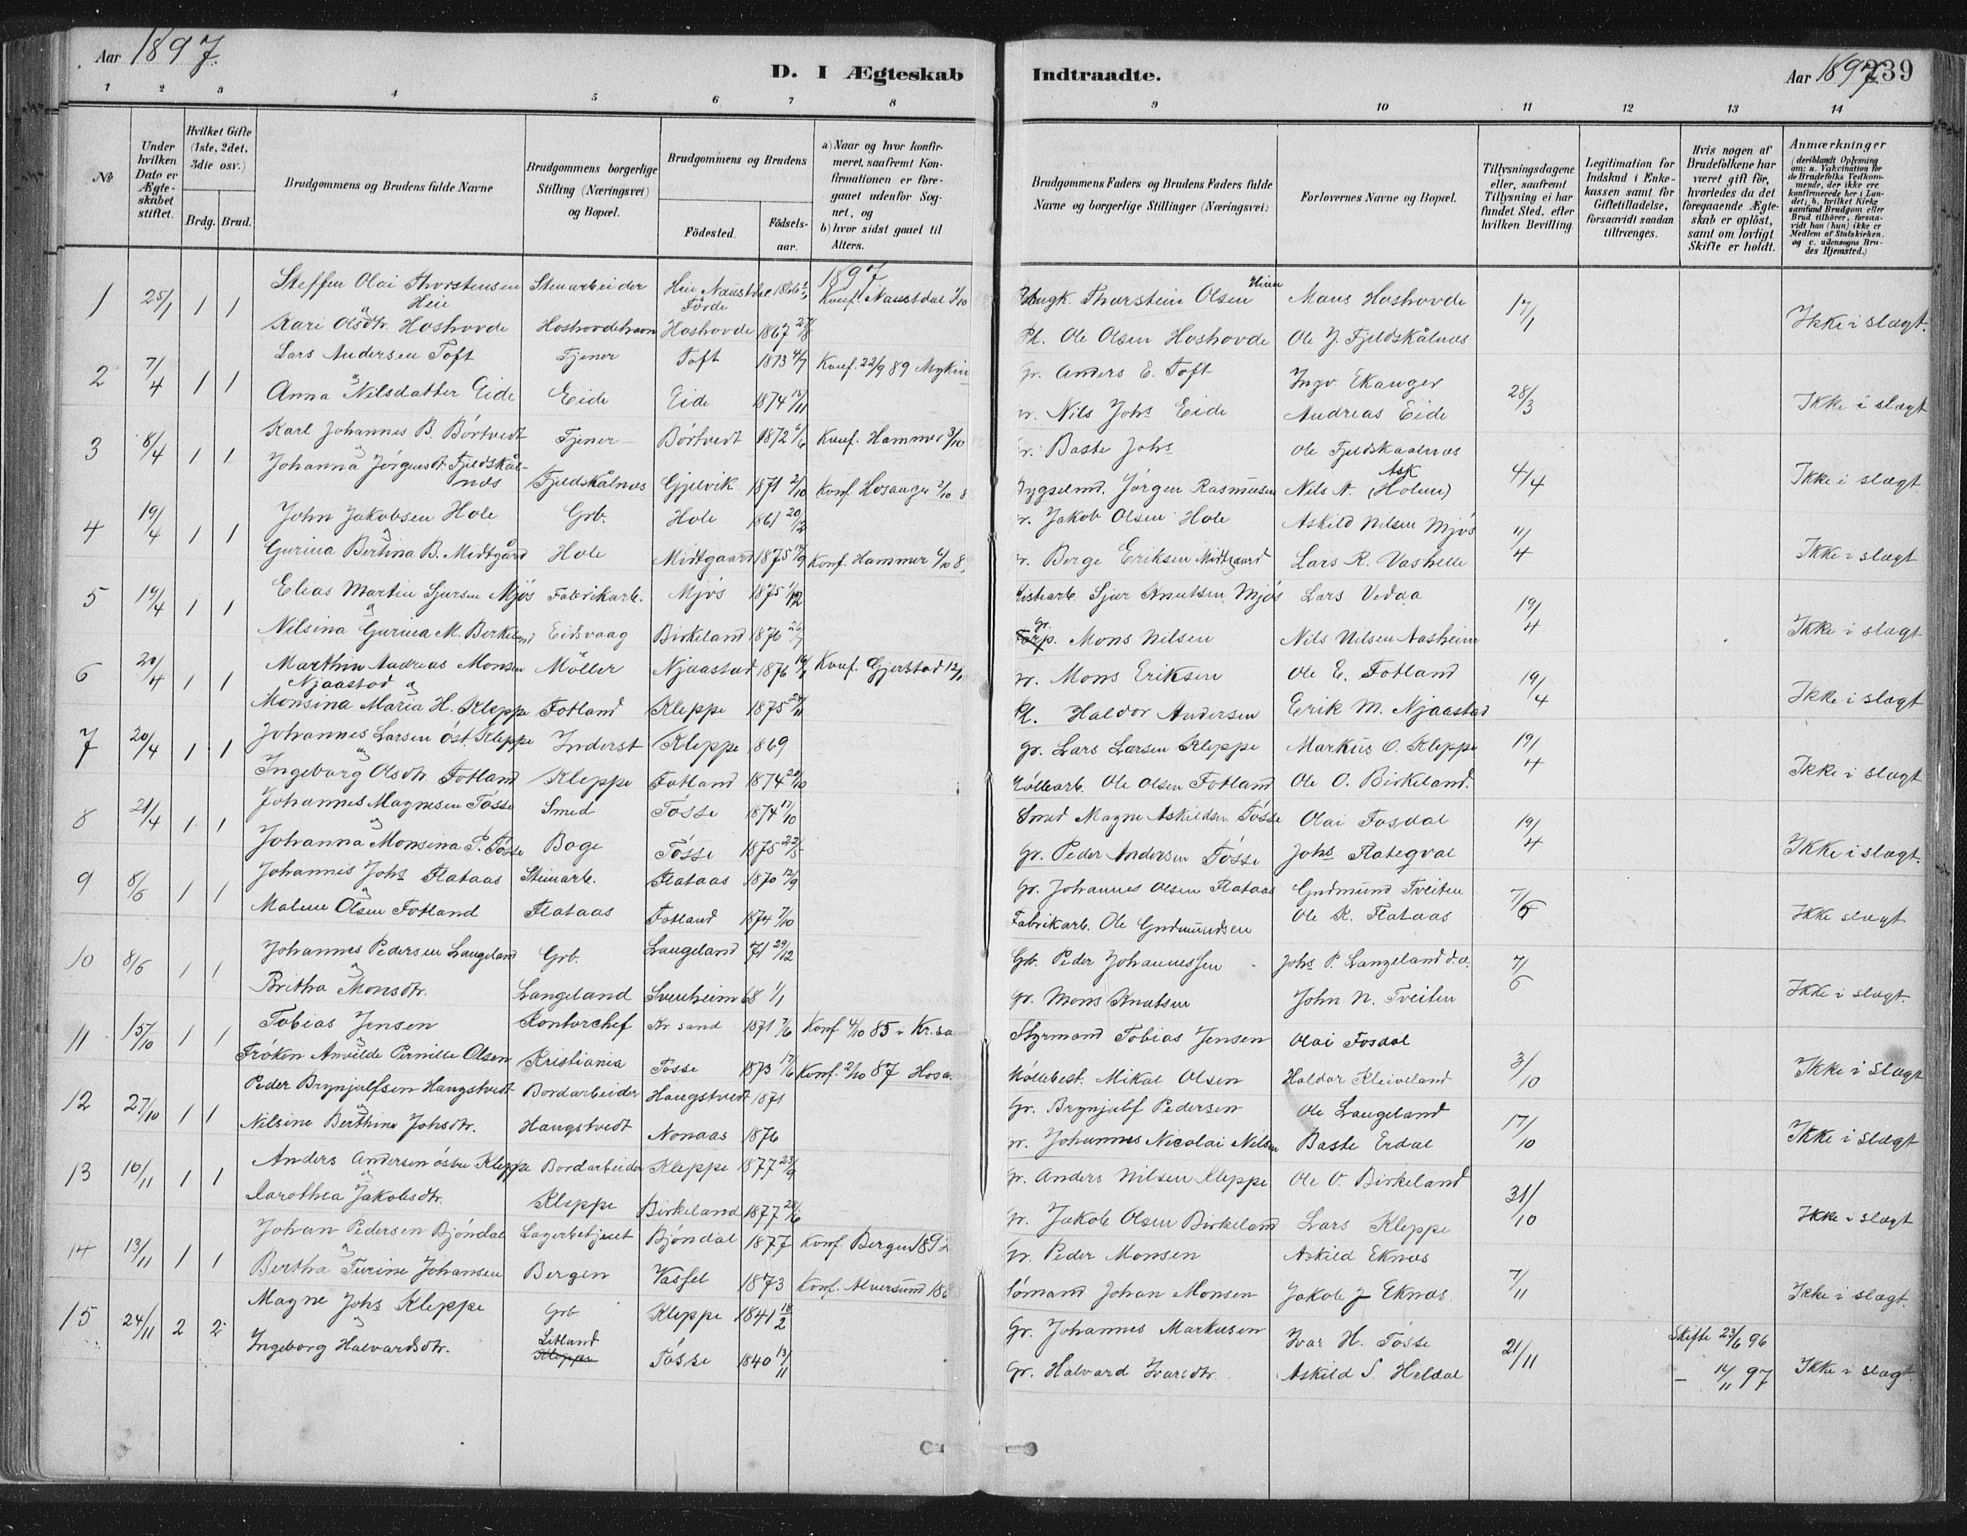 Aar 1897.
D. I Ægteskab Indtraadte.
Aar 1897 239
1 2 3 4 5 6 7 8 9 10 11 12 13 14
№ | Under hvilken Dato er Ægteskabet stiftet. | Hvilket Gifte (1ste, 2det, 3die osv.) Brdg. Brud. | Brudgommens og Brudens fulde Navne | Brudgommens borgerlige Stilling (Næringsvei) og Bopæl. | Brudgommens og Brudens Fødested. Fødselsaar. | a) Naar og hvor konfirmeret, saafremt Konfirmationen er foregaaet udenfor Sognet, og b) hvor sidst gaaet til Alters.
Brudgommens Faders og Brudens Faders fulde Navne og borgerlige Stillinger (Næringsvei) | Forlovernes Navne og Bopæl. | Tillysningsdagene eller, saafremt Tillysning ei har fundet Sted, efter hvilken Bevilling. | Legitimation for Indskud i Enkekassen samt for Giftetilladelse, forsaavidt saadan tiltrænges. | Hvis nogen af Brudefolkene har været gift før, hvorledes da det foregaaende Ægteskab er opløst, samt om lovligt Skifte er holdt. | Anmærkninger (deriblandt Oplysning om: a. Vakcination for de Brudefolks Vedkommende, der ikke ere konfirmerede her i Landet; b. hvilket Kirkesamfund Brudgom eller Brud tilhører, forsaavidt han (hun) ikke er Medlem af Statskirken, og c. udensogns Brudes Hjemsted.)
1897
1 25/1 1 1 Steffen Olai Thorstensen Heie Stenarbeider Naustdal Förde 1866 Konf. Naustdal Thorstein Olsen Mons Hoshovde 17/1 Ikke i slægt.
& Kari Olsdtr. Hoshovde Hoshovde 1867 Pl. Ole Olsen Hoshovde Ole J. Fjeldskålnes
2 7/4 1 1 Lars Andersen Toft Tjener Toft 1873 4/7 Konf. 22/9 89 Gr. Anders E. Toft Ingv. Ekanger 28/3 Ikke i slægt
& Anna Nilsdatter Eide Eide Eide 1874 Nils Johs Eide Andreas Eide
3 8/4 1 1 Karl Johannes B. Börtvedt Tjener Börtvedt 1872 Konf. Hammer 3/10 Baste Johs Ole Fjeldskaalnæs 4/4 Ikke i slægt
& Johanna Jörgensdt. Fjeldskålnæs Fjeldskålnæs Gjelvik 1871 2/10 Konf. Hosanger 2/10 Jörgen Rasmusen Nils A. Ask (Holme)
4 19/4 1 1 John Jakobsen Hole Grb. Hole 1861 20/12 Jakob Olsen Hole Askild Nilsen Mjös 11/4 Ikke i slægt
& Gurina Bertina B. Midtgård Hole Midtgaard 1875 Konf. Hammer Berge Eriksen Midtgaard Lars R.
5 19/4 1 1 Elias Martin Sjursen Mjös Fabrikarb. Mjös 1875 Sjur Knutsen Mjös Lars Vedaa 19/4 Ikke i slægt
& Nilsina Gurina M. Birkeland Eidsvaag Birkeland 1876 Gr. Mons Nilsen Nils Nilsen Aasheim
6 20/4 1 1 Marthin Andreas Monsen Njaastad Möller Njaastad 1876 Konf. Gjerstad Mons Eriksen Ole E. Fotland 19/4 Ikke i slægt
& Monsina Maria H. Kleppe Fotland Kleppe 1875 Pl. Haldor Andersen Erik M. Njaastad
7 20/4 1 1 Johannes Larsen öst. Kleppe Inderst Kleppe 1869 Gr. Lars Larsen Kleppe Markus O. Kleppe 19/4 Ikke i slægt
& Ingeborg Olsdtr. Fotland Kleppe Fotland 1874 Ole Olsen Fotland Ole O. Birkeland.
8 21/4 1 1 Johannes Magnesen Tösse Smed Tosse 1874 17/10 Smed Magne Askildsen Tösse Olai Fosdal 19/4 Ikke i slægt.
& Johanna Monsina P. Tösse Boge Tösse 1875 22/5 Gr. Peder Andersen Tösse Johs Flategval
9 8/6 1 1 Johannes Johs Flataas Stenarb. Flataas 1870 12/9 Gr. Johannes Olsen Flataas Gudmund Tveiten 7/6 Ikke slægt
& Malene Olsen Fotland Flataas Fotland 1874 7/10 Fabrikarb. Ole Gudmundsen Ole K. Flataas
10 8/6 1 1 Johannes Pedersen Langeland Grb. Langeland 71 29/12 Grb. Peder Johannessen Johs P. Langeland d.æ. 7/6 Ikke i slægt
& Britha Monsdtr. Langeland Svenheim 68 1/1 Gr. Mons Knutsen John N. Tveiten
11 15/10 1 1 Tobias Jensen Kontorchef Kr.sand 1871 7/6 Konf 4/10 85 i Kr.sa Styrmand Tobias Jensen Olai Fosdal 3/10 Ikke i slægt
& Fröken Anvilde Pernille Olsen Kristiania Tosse 1873 17/6 Konf. 2/10 87 Hosa. Möllebest. Mikal Olsen Haldor Kleiveland
12 27/10 1 1 Peder Brynjulfsen Haugstvedt Bordarbeider Haugstvedt 1871 Gr. Brynjulf Pedersen Ole Langeland 17/10 Ikke i slægt
& Nilsine Berthine Johsdtr. Haugstvedt Nonaas 1876 Johannes Nicolai Nilsen Baste Erdal
13 10/11 1 1 Anders Andersen östre Kleppe Bordarbeider Kleppe 1877 23/9 Gr. Anders Nilsen Kleppe Ole O. Birkeland 31/10 Ikke i slægt
& Darothea Jakobsdtr. Kleppe Birkeland 1877 Gr. Jakob Olsen Birkeland Lars Kleppe
14 13/11 1 1 Johan Pedersen Bjöndal Lagerbetjent Bjöndal 1877 Konf. Bergen Gr. Peder Monsen Askild Eknæs 7/11 Ikke i slægt.
& Bertha Turine Johansen Bergen 1873 Konf. Alversund Sömand Johan Monsen Jakob J. Eknæs
15 24/11 2 2 Magne Johs Kleppe Grb Kleppe 1841 18/2 Gr. Johannes Markusen Ivar H. Tösse 21/11 Skifte 23/6 96
& Ingeborg Halvardsdtr. Kleppe Tösse 1840 13/11 Gr. Halvard Ivarsdtr. Askild S. Heldal - 12/11 97 Ikke i slægt